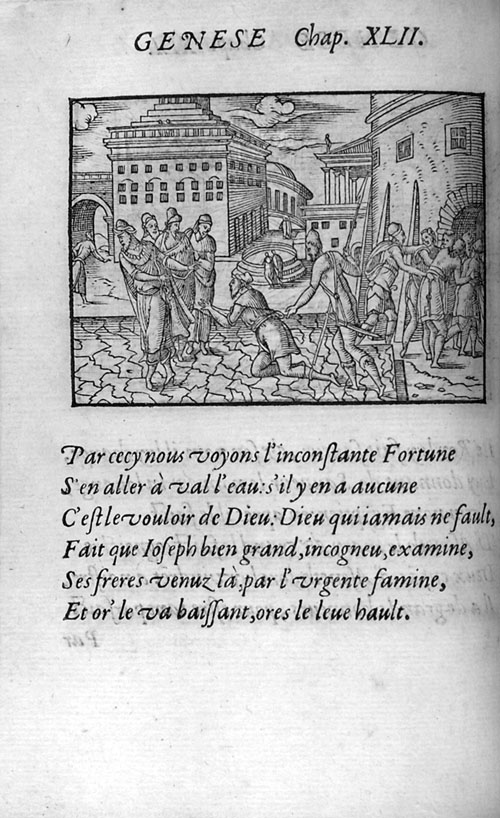 GENESE Chap. XLII.
Par cecy nous voyons l'inconſtante Fortune
S'en aller à val l'eau: s'il y en a aucune
C'eſt le vouloir de Dieu: Dieu qui iamais ne fault,
Fait que Ioſeph bien grand, incogneu, examine,
Ses freres venuz là, par l'vrgente famine,
Et or' le va baiſſant, ores le leue hault.